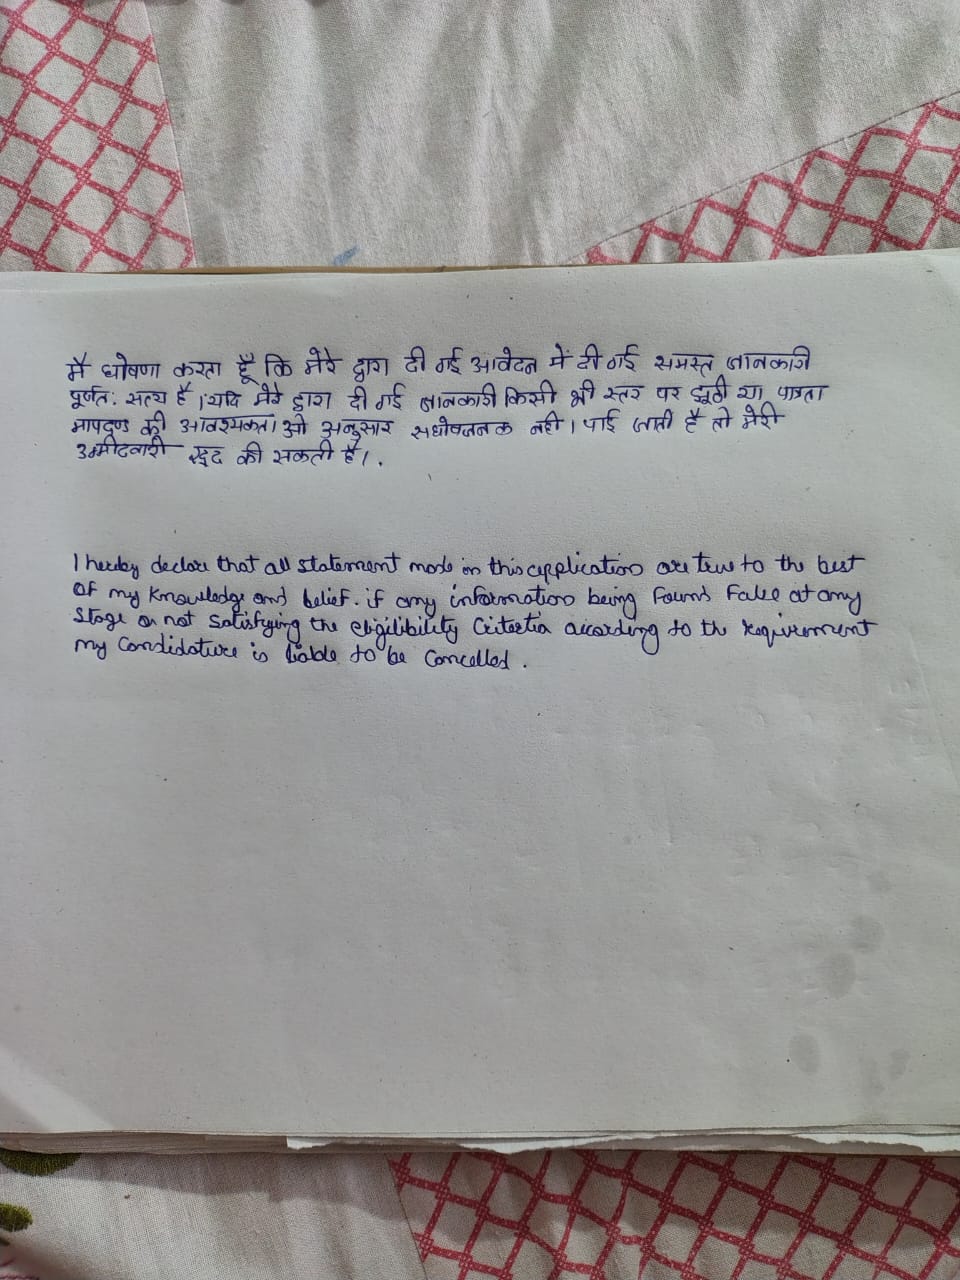 मै घोषणा करता हूँ कि मेरे द्वारा दी गई आवेदन में दी गई समस्त जानकारी
पूर्णत: सत्य है। यदि मेरे द्वारा दी गई जानकारी किसी भी स्तर पर झूठी या पात्रता
मापदण्ड की आवश्यकता। ओ अनुसार सधोषजनक नही। पाई जाती है तो मेरी
उम्मीदवारी रद्द की सकती है।.
I hereby declare that all statement made in this application are true to the best
of my knowledge and belief. if any information being found false at any
stage or not satisfying the eligilibility Criteria according to the requirement
my Candidature is liable to be Cancelled.